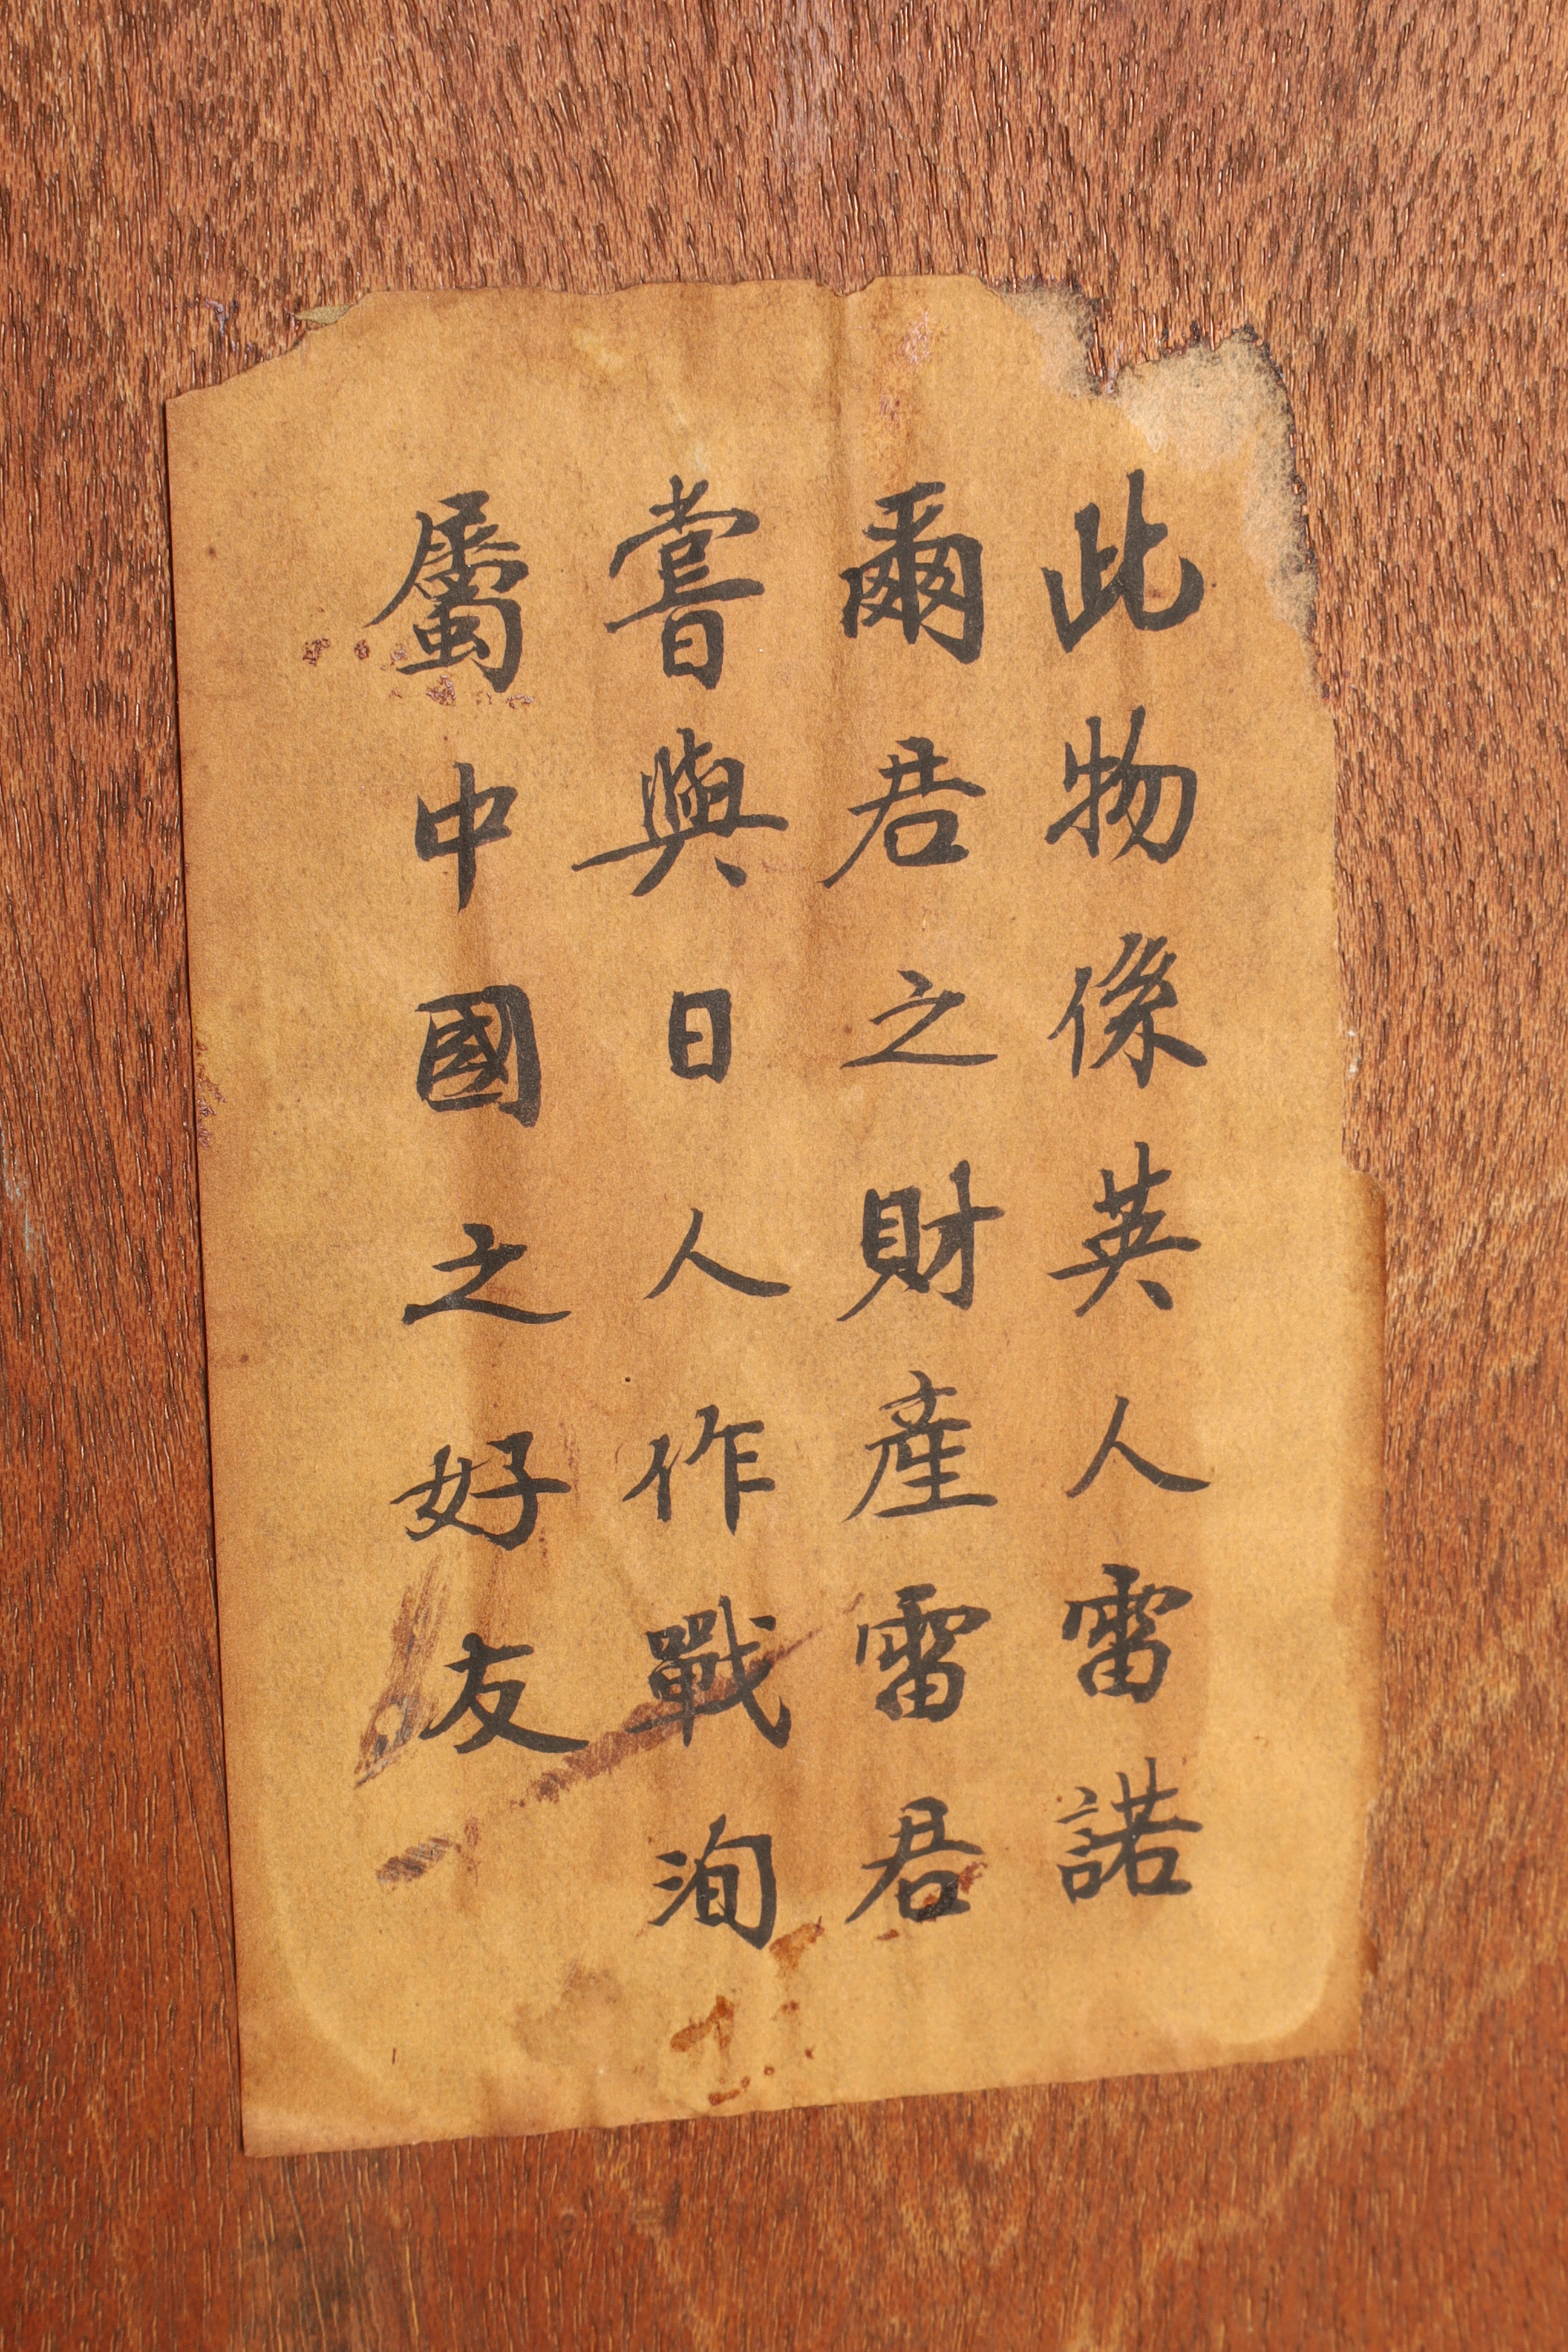 此物係英人雷諾
爾君之財產雷君
嘗與日人作戰洵
屬中國之好友